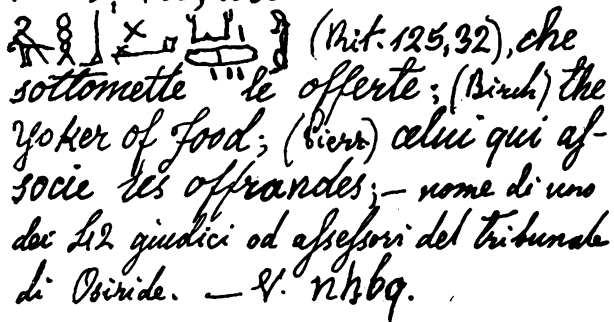 (Rit. 125,32), che
sottomette le offerte; (Birch) the
Yoker of food; (Pierr) celui qui as-
socie les offrandes; — nome di uno
dei 42 giudici od assessori del tribunale
di Osiride. — V. nḥbq.